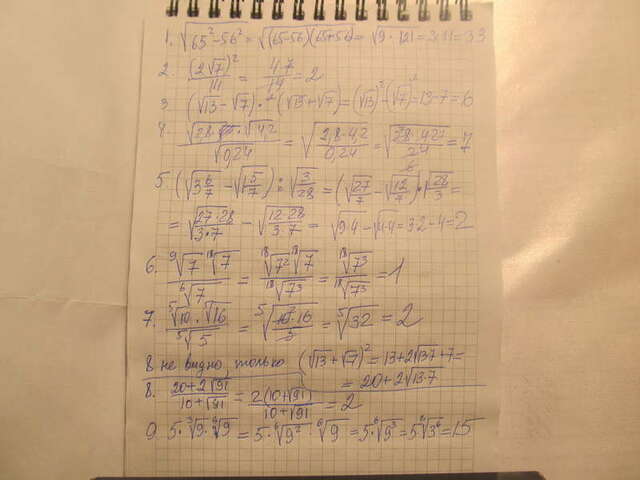 1. √(65²-56²) = √((65-56)(65+56)) = √(9·121) = 3·11 = 33
2. (2√7)²/14 = 4·7/14 = 2
3 (√13-√7)·(√13+√7) = (√13)²-(√7)² = 13-7 = 6
4. √0,24 = √(2,8·4,2/0,24) = 7
5 (√(3 6/7) - √(1 5/7)) : √(3/28) = (√(27/7) - √(12/7))·√(28/3) =
= √(27·28/(3·7)) - √(12·28/(3·7)) = √(9·4) - √(4·4) = 3·2-4 = 2
6. ⁹√7 · ¹⁸√7 / ⁶√7 = ¹⁸√7² · ¹⁸√7 / ¹⁸√7³ = ¹⁸√7³ / ¹⁸√7³ = 1
7. ⁵√10 · ⁵√16 / ⁵√5 = ⁵√(10·16/5) = ⁵√32 = 2
8 не видно, только (√13+√7)² = 13+2√(13·7)+7 =
= 20+2√(13·7)
8. (20+2√91)/(10+√91) = 2(10+√91)/(10+√91) = 2
9 5·³√9·⁶√9 = 5·⁶√9²·⁶√9 = 5·⁶√9³ = 5⁶√3⁶ = 15